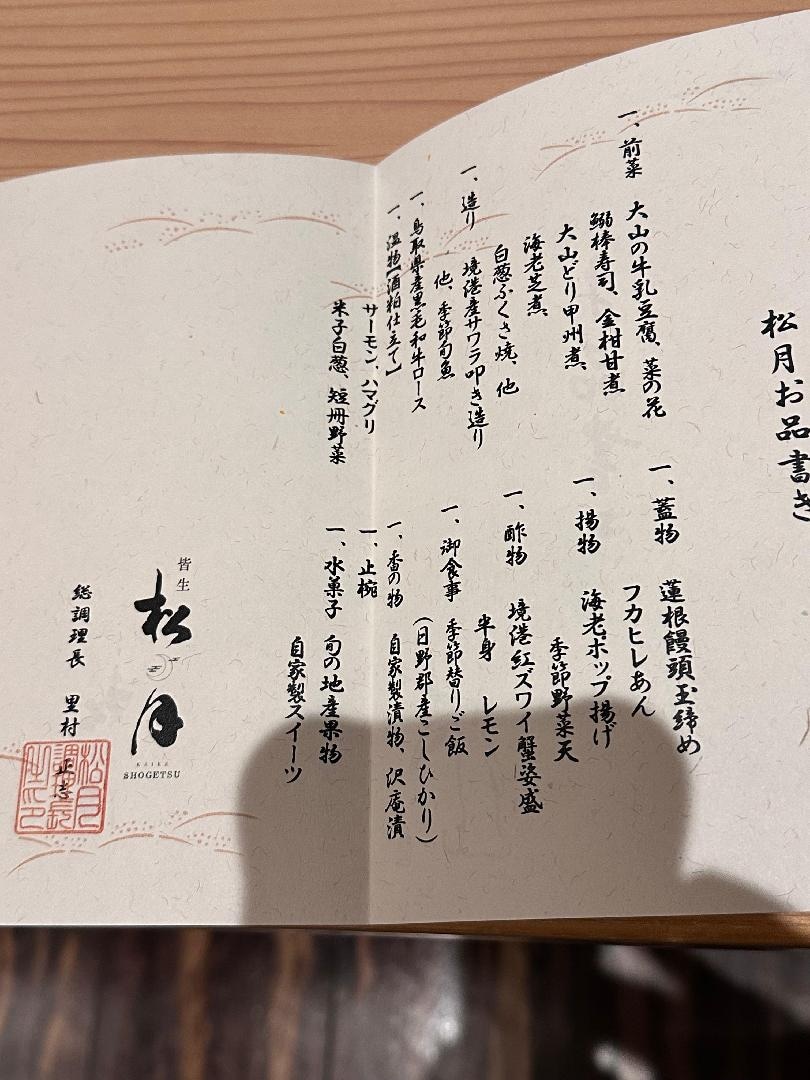 松月お品書き
一、前菜　大山の牛乳豆腐、菜の花
鰯棒寿司、金柑甘煮
大山どり甲州煮、
海老芝煮、
白葱ふくさ焼、他
一、造り　境港産サワラ叩き造り
他、季節旬魚
一、鳥取県産黒毛和牛ロース
一、温物【酒粕仕立て】
サーモン、ハマグリ
米子白葱、短冊野菜
一、蓋物　蓮根饅頭玉締め
フカヒレあん
一、揚物　海老ポップ揚げ
季節野菜天
一、酢物　境港紅ズワイ蟹姿盛
半身　レモン
一、御食事　季節替りご飯
(日野郡産こしひかり)
一、香の物　自家製漬物、沢庵漬
一、止椀
一、水菓子　旬の地産果物
自家製スイーツ
皆生
松月
KAIKE
SHOGETSU
総調理長　里村　正志